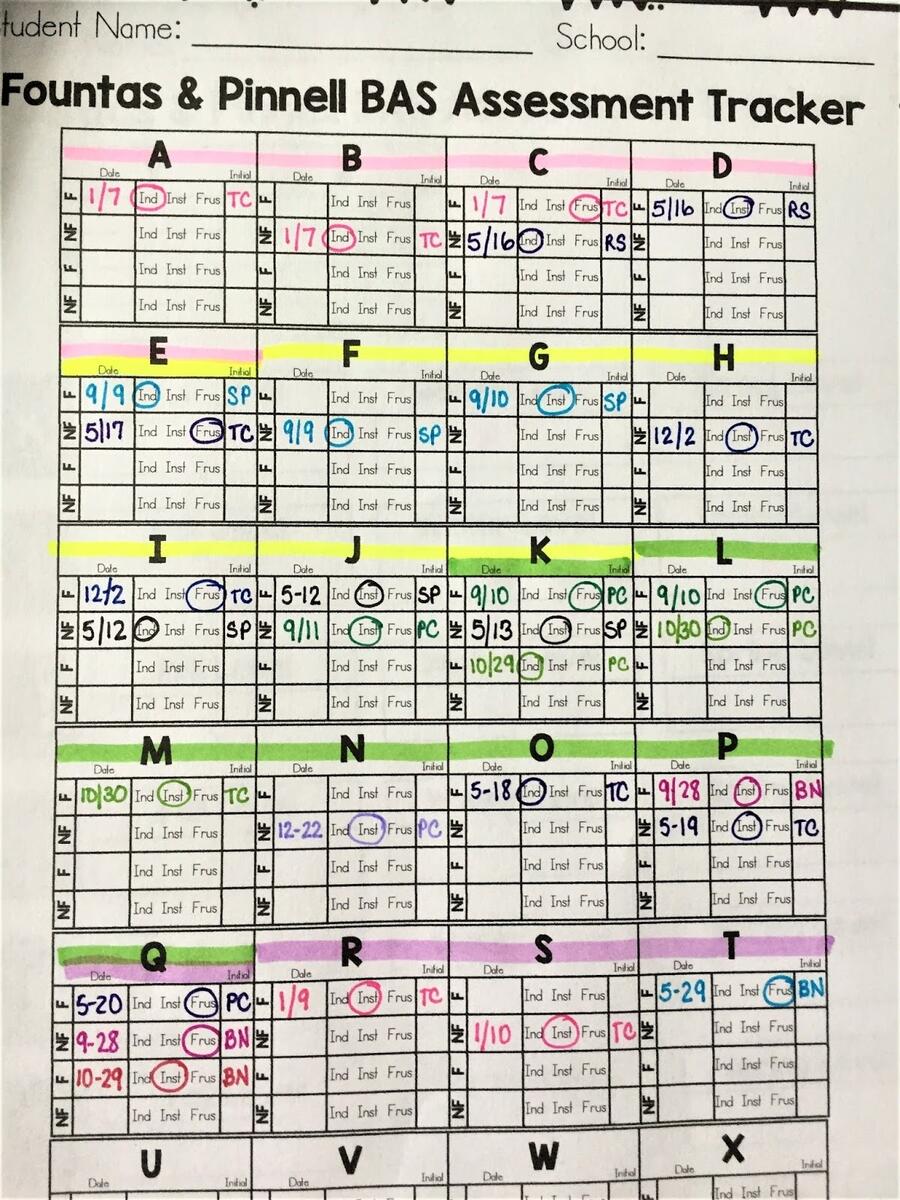 tudent Name: School:
Fountas & Pinnell BAS Assessment Tracker
A B C D
Date Initial Date Initial Date Initial Date Initial
F 1/7 Ind Inst Frus TC F Ind Inst Frus F 1/7 Ind Inst Frus TC F 5/16 Ind Inst Frus RS
NF Ind Inst Frus NF 1/7 Ind Inst Frus TC NF 5/16 Ind Inst Frus RS NF Ind Inst Frus
F Ind Inst Frus F Ind Inst Frus F Ind Inst Frus F Ind Inst Frus
NF Ind Inst Frus NF Ind Inst Frus NF Ind Inst Frus NF Ind Inst Frus
E F G H
Date Initial Date Initial Date Initial Date Initial
F 9/9 Ind Inst Frus SP F Ind Inst Frus F 9/10 Ind Inst Frus SP F Ind Inst Frus
NF 5/17 Ind Inst Frus TC NF 9/9 Ind Inst Frus SP NF Ind Inst Frus NF 12/2 Ind Inst Frus TC
F Ind Inst Frus F Ind Inst Frus F Ind Inst Frus F Ind Inst Frus
NF Ind Inst Frus NF Ind Inst Frus NF Ind Inst Frus NF Ind Inst Frus
I J K L
Date Initial Date Initial Date Initial Date Initial
F 12/2 Ind Inst Frus TC F 5-12 Ind Inst Frus SP F 9/10 Ind Inst Frus PC F 9/10 Ind Inst Frus PC
NF 5/12 Ind Inst Frus SP NF 9/11 Ind Inst Frus PC NF 5/13 Ind Inst Frus SP NF 10/30 Ind Inst Frus PC
F Ind Inst Frus F Ind Inst Frus F 10/29 Ind Inst Frus PC F Ind Inst Frus
NF Ind Inst Frus NF Ind Inst Frus NF Ind Inst Frus NF Ind Inst Frus
M N O P
Date Initial Date Initial Date Initial Date Initial
F 10/30 Ind Inst Frus TC F Ind Inst Frus F 5-18 Ind Inst Frus TC F 9/28 Ind Inst Frus BN
NF Ind Inst Frus NF 12-22 Ind Inst Frus PC NF Ind Inst Frus NF 5-19 Ind Inst Frus TC
F Ind Inst Frus F Ind Inst Frus F Ind Inst Frus F Ind Inst Frus
NF Ind Inst Frus NF Ind Inst Frus NF Ind Inst Frus NF Ind Inst Frus
Q R S T
Date Initial Date Initial Date Initial Date Initial
F 5-20 Ind Inst Frus PC F 1/9 Ind Inst Frus TC F Ind Inst Frus F 5-29 Ind Inst Frus BN
NF 9-28 Ind Inst Frus BN NF Ind Inst Frus NF 1/10 Ind Inst Frus TC NF Ind Inst Frus
F 10-29 Ind Inst Frus BN F Ind Inst Frus F Ind Inst Frus F Ind Inst Frus
NF Ind Inst Frus NF Ind Inst Frus NF Ind Inst Frus NF Ind Inst Frus
U V W X
Date Initial Date Initial Date Initial Date Initial
Ind Inst Frus